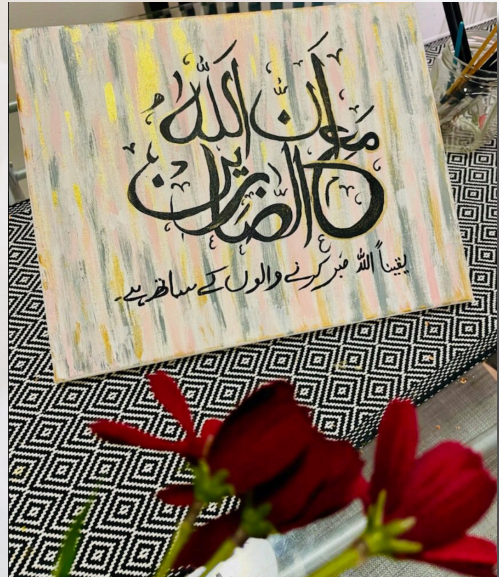 ان الله
مع الصابرين
یقیناً اللہ صبر کرنے والوں کے ساتھ ہے۔